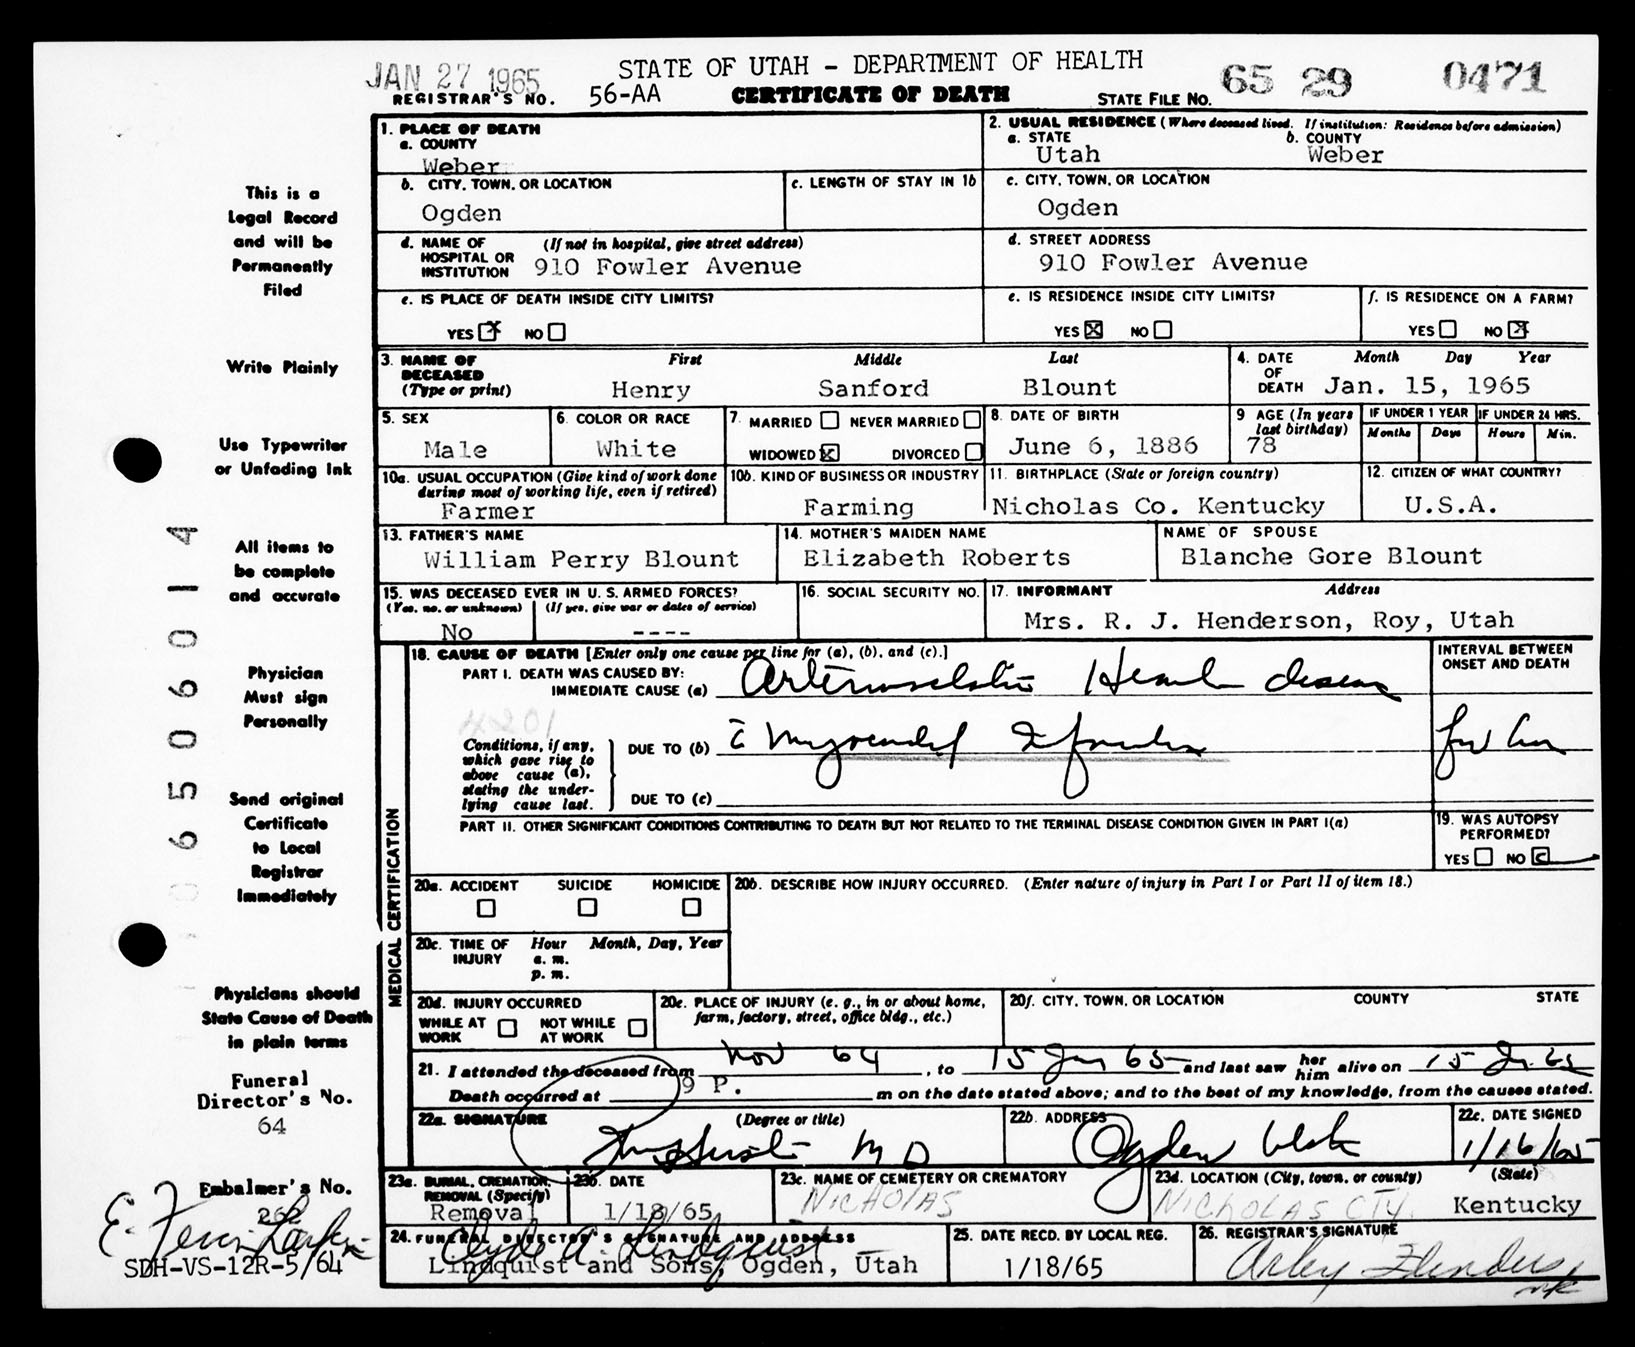 JAN 27 1965
STATE OF UTAH - DEPARTMENT OF HEALTH
65 29 0471
REGISTRAR'S NO. 56-AA
CERTIFICATE OF DEATH
STATE FILE NO.
1. PLACE OF DEATH
a. COUNTY
Weber
2. USUAL RESIDENCE (Where deceased lived. If institution: Residence before admission)
a. STATE b. COUNTY
Utah Weber
b. CITY, TOWN, OR LOCATION
Ogden
c. LENGTH OF STAY IN 1b
c. CITY, TOWN, OR LOCATION
Ogden
d. NAME OF (If not in hospital, give street address)
HOSPITAL OR
INSTITUTION 910 Fowler Avenue
d. STREET ADDRESS
910 Fowler Avenue
e. IS PLACE OF DEATH INSIDE CITY LIMITS?
YES X NO
e. IS RESIDENCE INSIDE CITY LIMITS?
YES X NO
f. IS RESIDENCE ON A FARM?
YES NO X
3. NAME OF First Middle Last
DECEASED
(Type or print) Henry Sanford Blount
4. DATE Month Day Year
OF
DEATH Jan. 15, 1965
5. SEX
Male
6. COLOR OR RACE
White
7. MARRIED NEVER MARRIED
WIDOWED X DIVORCED
8. DATE OF BIRTH
June 6, 1886
9 AGE (In years
last birthday)
78
IF UNDER 1 YEAR
Months Days
IF UNDER 24 HRS.
Hours Min.
10a. USUAL OCCUPATION (Give kind of work done
during most of working life, even if retired)
Farmer
10b. KIND OF BUSINESS OR INDUSTRY
Farming
11. BIRTHPLACE (State or foreign country)
Nicholas Co. Kentucky
12. CITIZEN OF WHAT COUNTRY?
U.S.A.
13. FATHER'S NAME
William Perry Blount
14. MOTHER'S MAIDEN NAME
Elizabeth Roberts
NAME OF SPOUSE
Blanche Gore Blount
15. WAS DECEASED EVER IN U. S. ARMED FORCES?
(Yes, no, or unknown) (If yes, give war or dates of service)
No ----
16. SOCIAL SECURITY NO.
17. INFORMANT Address
Mrs. R. J. Henderson, Roy, Utah
MEDICAL CERTIFICATION
18. CAUSE OF DEATH [Enter only one cause per line for (a), (b), and (c).]
PART I. DEATH WAS CAUSED BY:
IMMEDIATE CAUSE (a) Arteriosclerotic Heart disease
4201
Conditions, if any,
which gave rise to
above cause (a),
stating the under-
lying cause last.
DUE TO (b) c̄ Myocardial Infarction
DUE TO (c)
INTERVAL BETWEEN
ONSET AND DEATH
PART II. OTHER SIGNIFICANT CONDITIONS CONTRIBUTING TO DEATH BUT NOT RELATED TO THE TERMINAL DISEASE CONDITION GIVEN IN PART I(a)
19. WAS AUTOPSY
PERFORMED?
YES NO
20a. ACCIDENT SUICIDE HOMICIDE
20b. DESCRIBE HOW INJURY OCCURRED. (Enter nature of injury in Part I or Part II of item 18.)
20c. TIME OF Hour Month, Day, Year
INJURY a. m.
p. m.
20d. INJURY OCCURRED
WHILE AT WORK NOT WHILE AT WORK
20e. PLACE OF INJURY (e. g., in or about home,
farm, factory, street, office bldg., etc.)
20f. CITY, TOWN, OR LOCATION COUNTY STATE
21. I attended the deceased from Nov 64, to 15 Jan 65 and last saw her him alive on 15 Jan 65
Death occurred at 9 P. m on the date stated above; and to the best of my knowledge, from the causes stated.
22a. SIGNATURE (Degree or title)
M D
22b. ADDRESS
Ogden Utah
22c. DATE SIGNED
1/16/65
23a. BURIAL, CREMATION,
REMOVAL (Specify)
Removal
23b. DATE
1/18/65
23c. NAME OF CEMETERY OR CREMATORY
NICHOLAS
23d. LOCATION (City, town, or county) (State)
NICHOLAS CTY. Kentucky
24. FUNERAL DIRECTOR'S SIGNATURE AND ADDRESS
Clyde A. Lindquist
Lindquist and Sons, Ogden, Utah
25. DATE RECD. BY LOCAL REG.
1/18/65
26. REGISTRAR'S SIGNATURE
Arley Flinders
This is a
Legal Record
and will be
Permanently
Filed
Write Plainly
Use Typewriter
or Unfading Ink
All items to
be complete
and accurate
Physician
Must sign
Personally
Send original
Certificate
to Local
Registrar
Immediately
Physicians should
State Cause of Death
in plain terms
Funeral
Director's No.
64
Embalmer's No.
262
SDH-VS-12R-5/64
06506014